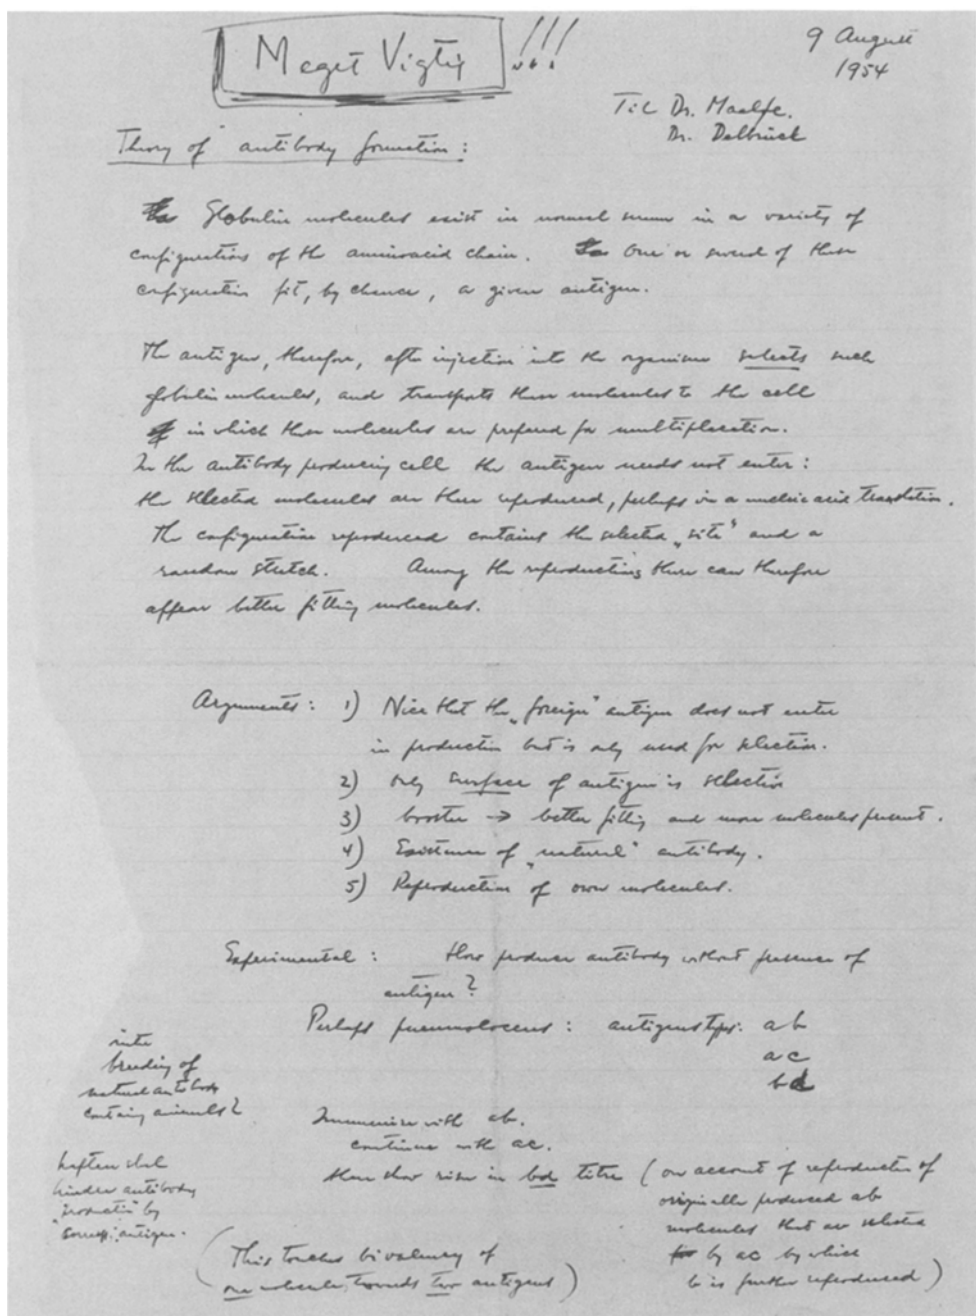 Meget Vigtig !!!
9 August
1954
Til Dr. Maaløe.
Dr. Delbrück
Theory of antibody formation:
Globulin molecules exist in normal serum in a variety of
configurations of the aminoacid chain. One or several of these
configuration fit, by chance, a given antigen.
The antigen, therefore, after injection into the organism selects such
globulin molecules, and transports these molecules to the cell
in which these molecules are prepared for multiplication.
In the antibody producing cell the antigen needs not enter:
the selected molecules are there reproduced, perhaps in a nucleic acid translation.
The configuration reproduced contains the selected „site" and a
random stretch. Among the reproductions there can therefore
appear better fitting molecules.
Arguments: 1) Nice that the „foreign" antigen does not enter
in production but is only used for selection.
2) only surface of antigen is selection
3) booster → better fitting and more molecules present.
4) Existence of „natural" antibody.
5) Reproduction of own molecules.
Experimental: How produce antibody without presence of
antigen?
Perhaps pneumococcus: antigens types: ab
ac
bd
inter
breeding of
natural antibody
containing animals?
Immunise with ab.
continue with ac.
then show rise in bd titre (on account of reproduction of
originally produced ab
molecules that are selected
by ac by which
b is further reproduced)
hapten shal
hinder antibody
production by
corresp. antigen.
(This touches bivalency of
one molecule towards two antigens)